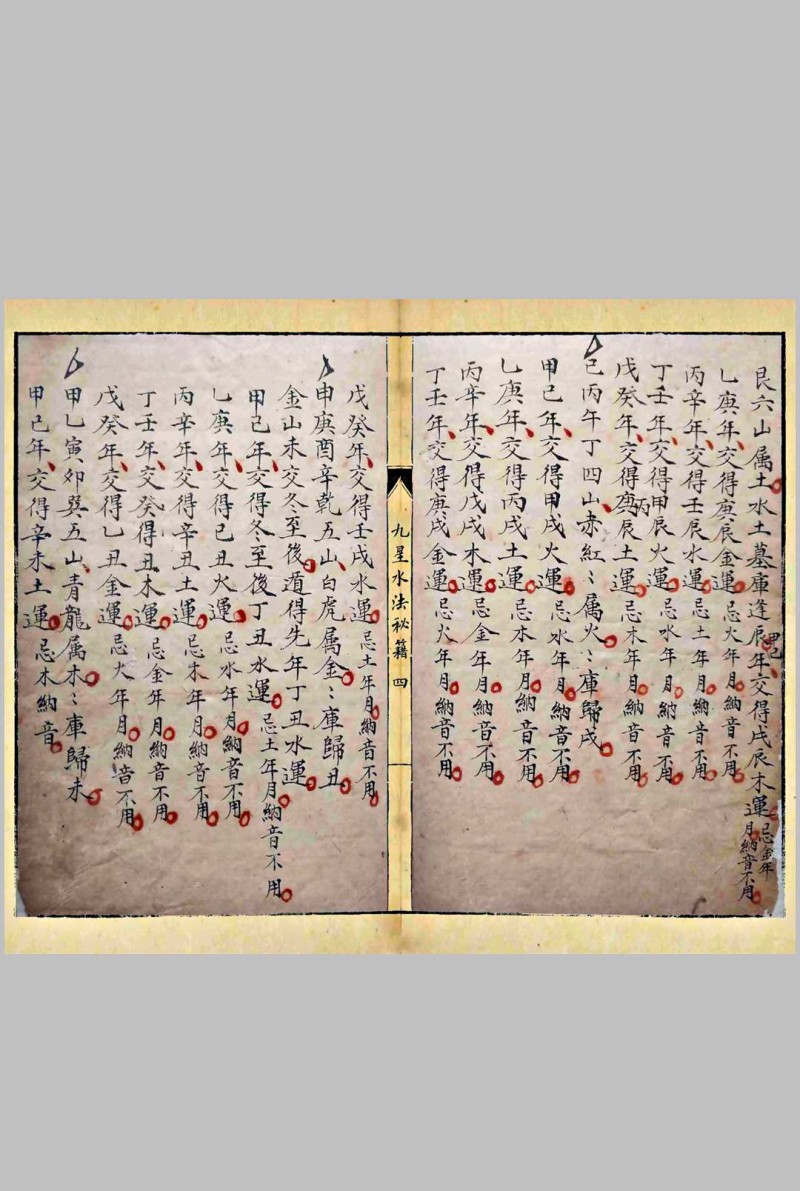 艮六山属土水土墓庫逢辰年交得戊辰木運忌金年月納音不用
甲己
乙庚年交得庚辰金運忌火年月納音不用
丙辛年交得壬辰水運忌土年月納音不用
丁壬年交得甲辰火運忌水年月納音不用
戊癸年交得庚辰土運忌木年月納音不用
丙
己丙午丁四山赤紅〻属火〻庫歸戌
甲己年交得甲戌火運忌水年月納音不用
乙庚年交得丙戌土運忌木年月納音不用
丙辛年交得戊戌木運忌金年月納音不用
丁壬年交得庚戌金運忌火年月納音不用
九星水法祕籍 四
戊癸年交得壬戌水運忌土年月納音不用
申庚酉辛乾五山白虎属金〻庫歸丑
金山未交冬至後遁得先年丁丑水運
甲己年交得冬至後丁丑水運忌土年月納音不用
乙庚年交得己丑火運忌水年月納音不用
丙辛年交得辛丑土運忌木年月納音不用
丁壬年交癸得丑木運忌金年月納音不用
戊癸年交得乙丑金運忌火年月納音不用
甲乙寅卯巽五山青龍属木〻庫歸未
甲己年交得辛未土運忌木納音